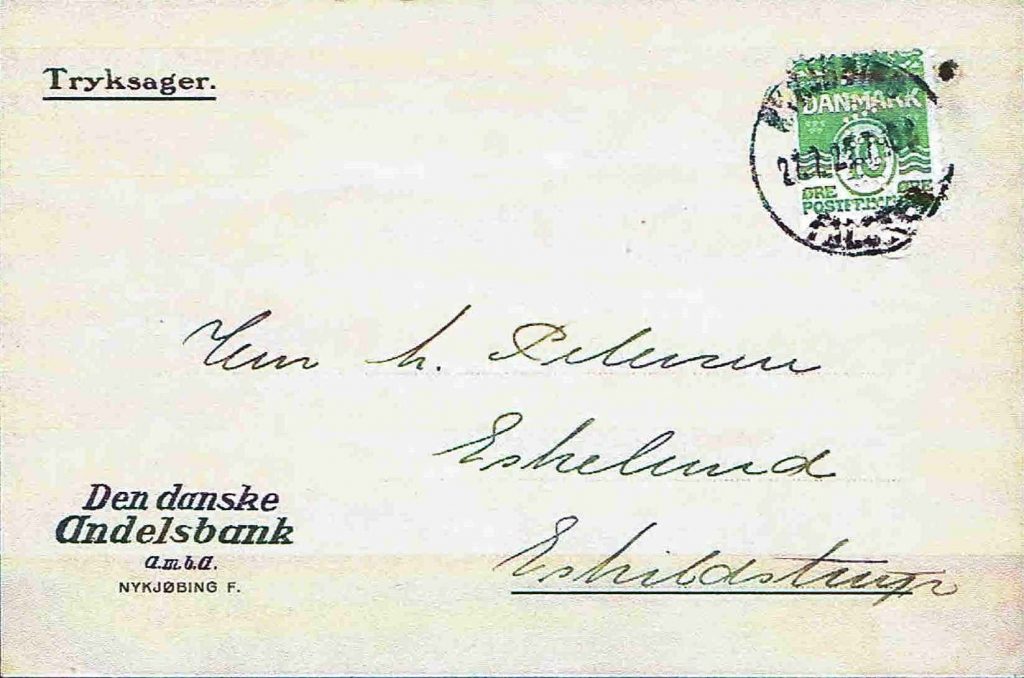 Tryksager.
DANMARK
10
ØRE ØRE
Herr h. Petersen
Eskelund
Eskildstrup
Den danske
Andelsbank
A.m.b.A.
NYKJØBING F.